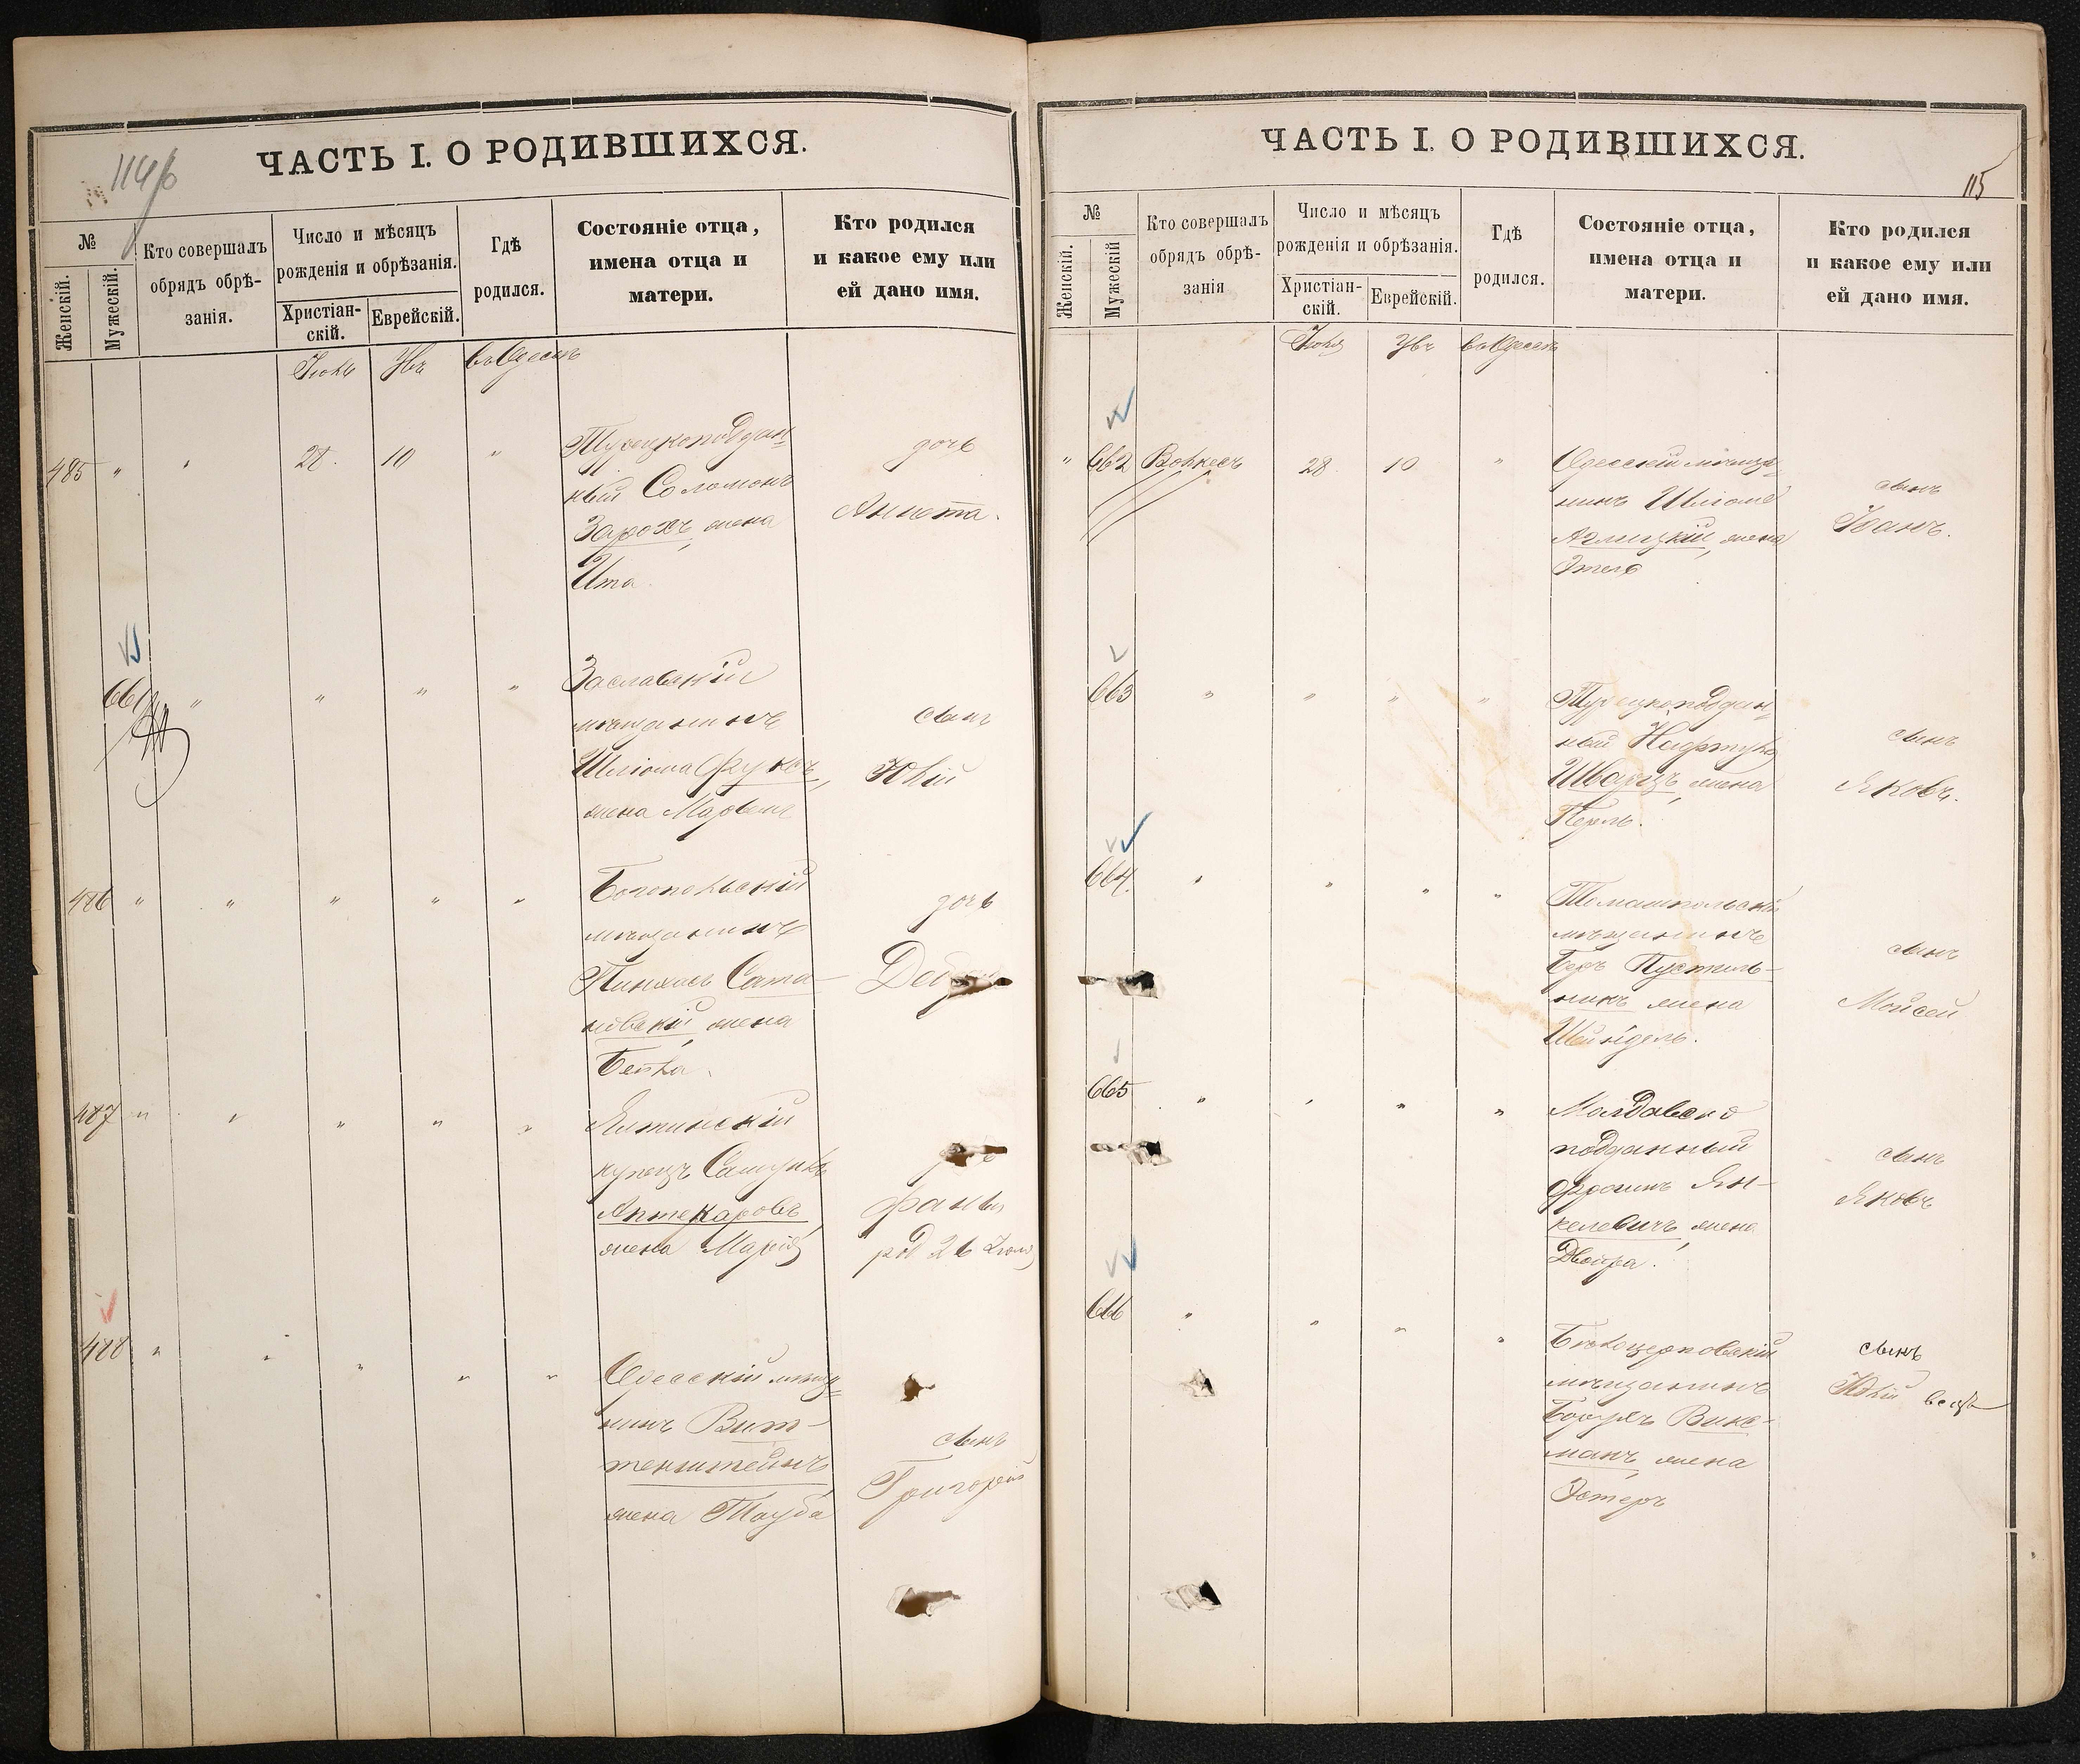 114/б
ЧАСТЬ I. О РОДИВШИХСЯ.
№
Женскій.
Мужескій.
Кто совершалъ
обрядъ обрѣ-
занія.
Число и мѣсяцъ
рожденія и обрѣзанія.
Христіан-
скій.
Еврейскій.
Гдѣ
родился.
Состояніе отца,
имена отца и
матери.
Кто родился
и какое ему или
ей дано имя.
въ Одессѣ
485 " " 28. 10 "
Турецкоподдан=
ный Соломонъ
Зарохъ, жена
Ита.
дочь
Аннета.
661 " " " "
Заславскій
мѣщанинъ
Шліома Фуксъ,
жена
сынъ
Юлій
486 " " " " "
Богопольскій
мѣщанинъ
Пинхасъ Сата-
новскій, жена
Бейла.
дочь
487 " " " " "
Ялтинскій
купецъ Самуилъ
Аптекаровъ,
жена Марія
Фаня
род 26 Іюля
488 " " " " "
Одесскій мѣща=
нинъ Вит-
тенштейнъ,
жена Тауба
сынъ
Григорій
115
ЧАСТЬ I. О РОДИВШИХСЯ.
№
Женскій.
Мужескій
Кто совершалъ
обрядъ обрѣ-
занія
Число и мѣсяцъ
рожденія и обрѣзанія.
Христіан-
скій.
Еврейскій.
Гдѣ
родился.
Состояніе отца,
имена отца и
матери.
Кто родился
и какое ему или
ей дано имя.
въ Одессѣ
" 662 28 10 "
Одесскій мѣща-
нинъ Шліома
жена
Этель
сынъ
663 " " " "
Турецкоподдан=
ный Нафтула
Шварцъ, жена
Перль.
сынъ
Яковъ.
664. " " " "
Томашпольскій
мѣщанинъ
Беръ Пустиль-
никъ жена
Шейндель.
сынъ
Мойсей
665 " " " "
Молдавско
подданный
Фроимъ Ян-
келевичъ, жена
Двойра.
сынъ
Яковъ
666 " " " "
Бѣлоцерковскій
мѣщанинъ
Викс-
манъ, жена
Эстеръ
сынъ
Юлій